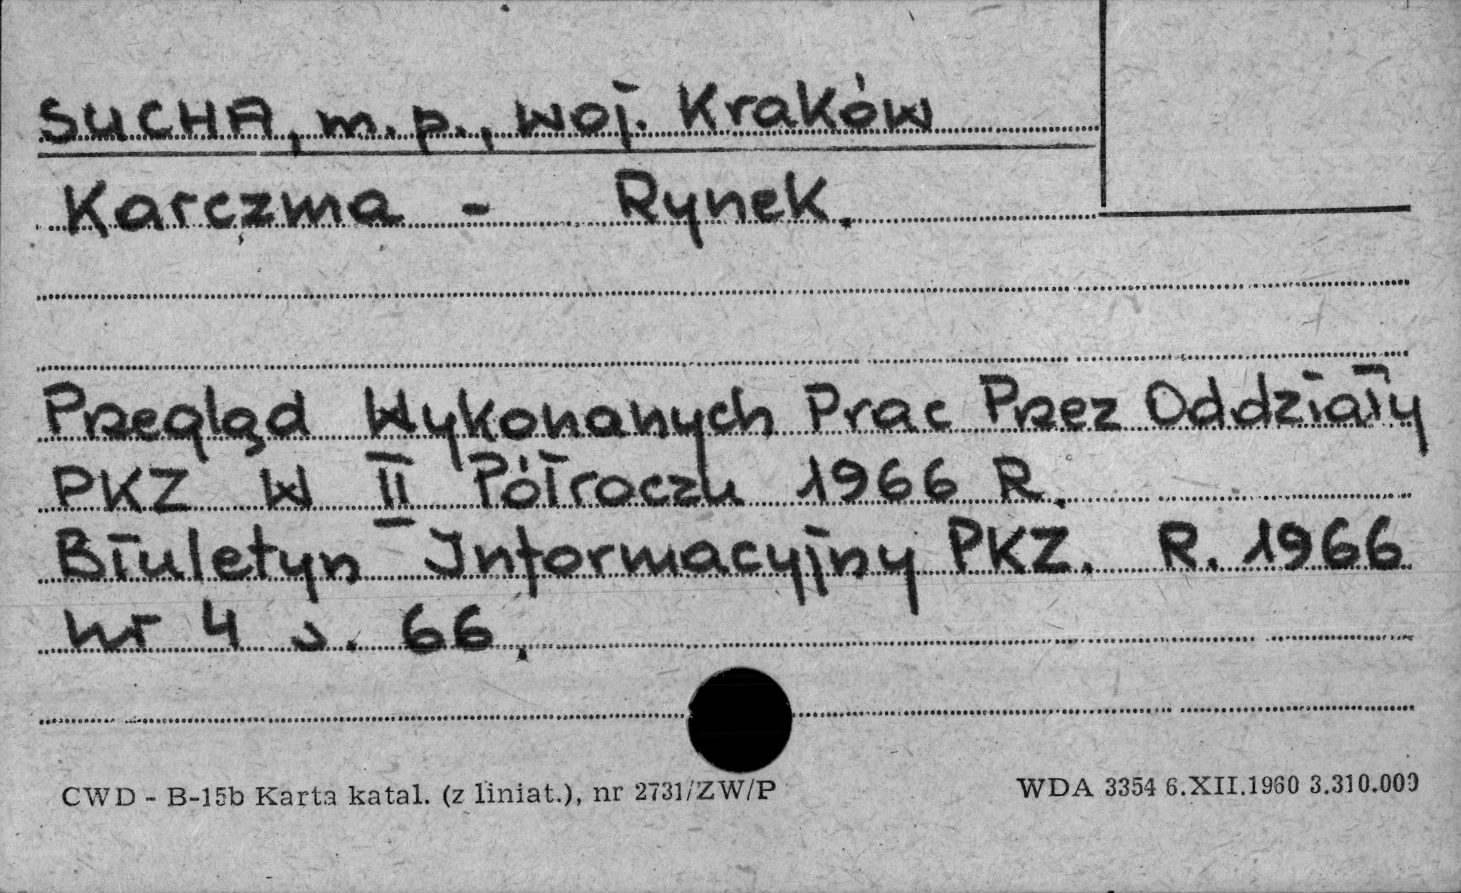 SUCHA, m.p., woj. Kraków
Karczma - Rynek.
Przegląd Wykonanych Prac Przez Oddziały
PKZ W II Półroczu 1966 R.
Biuletyn Informacyjny PKZ. R. 1966
nr 4 s. 66.
CWD - B-15b Karta katal. (z liniat.), nr 2731/ZW/P
WDA 3354 6.XII.1960 3.310.000